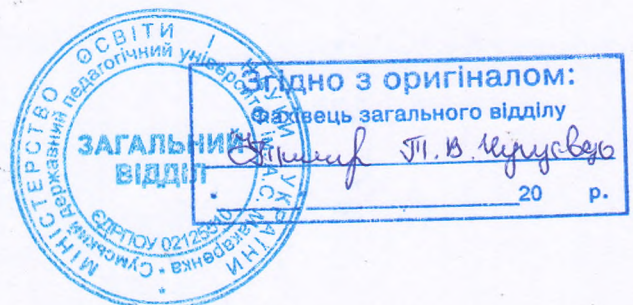 МІНІСТЕРСТВО ОСВІТИ І НАУКИ УКРАЇНИ
Сумський державний педагогічний університет ім. А.С. Макаренка
ЗАГАЛЬНИЙ
ВІДДІЛ
ЄДРПОУ
Згідно з оригіналом:
Фахівець загального відділу
Т. В.
20 р.